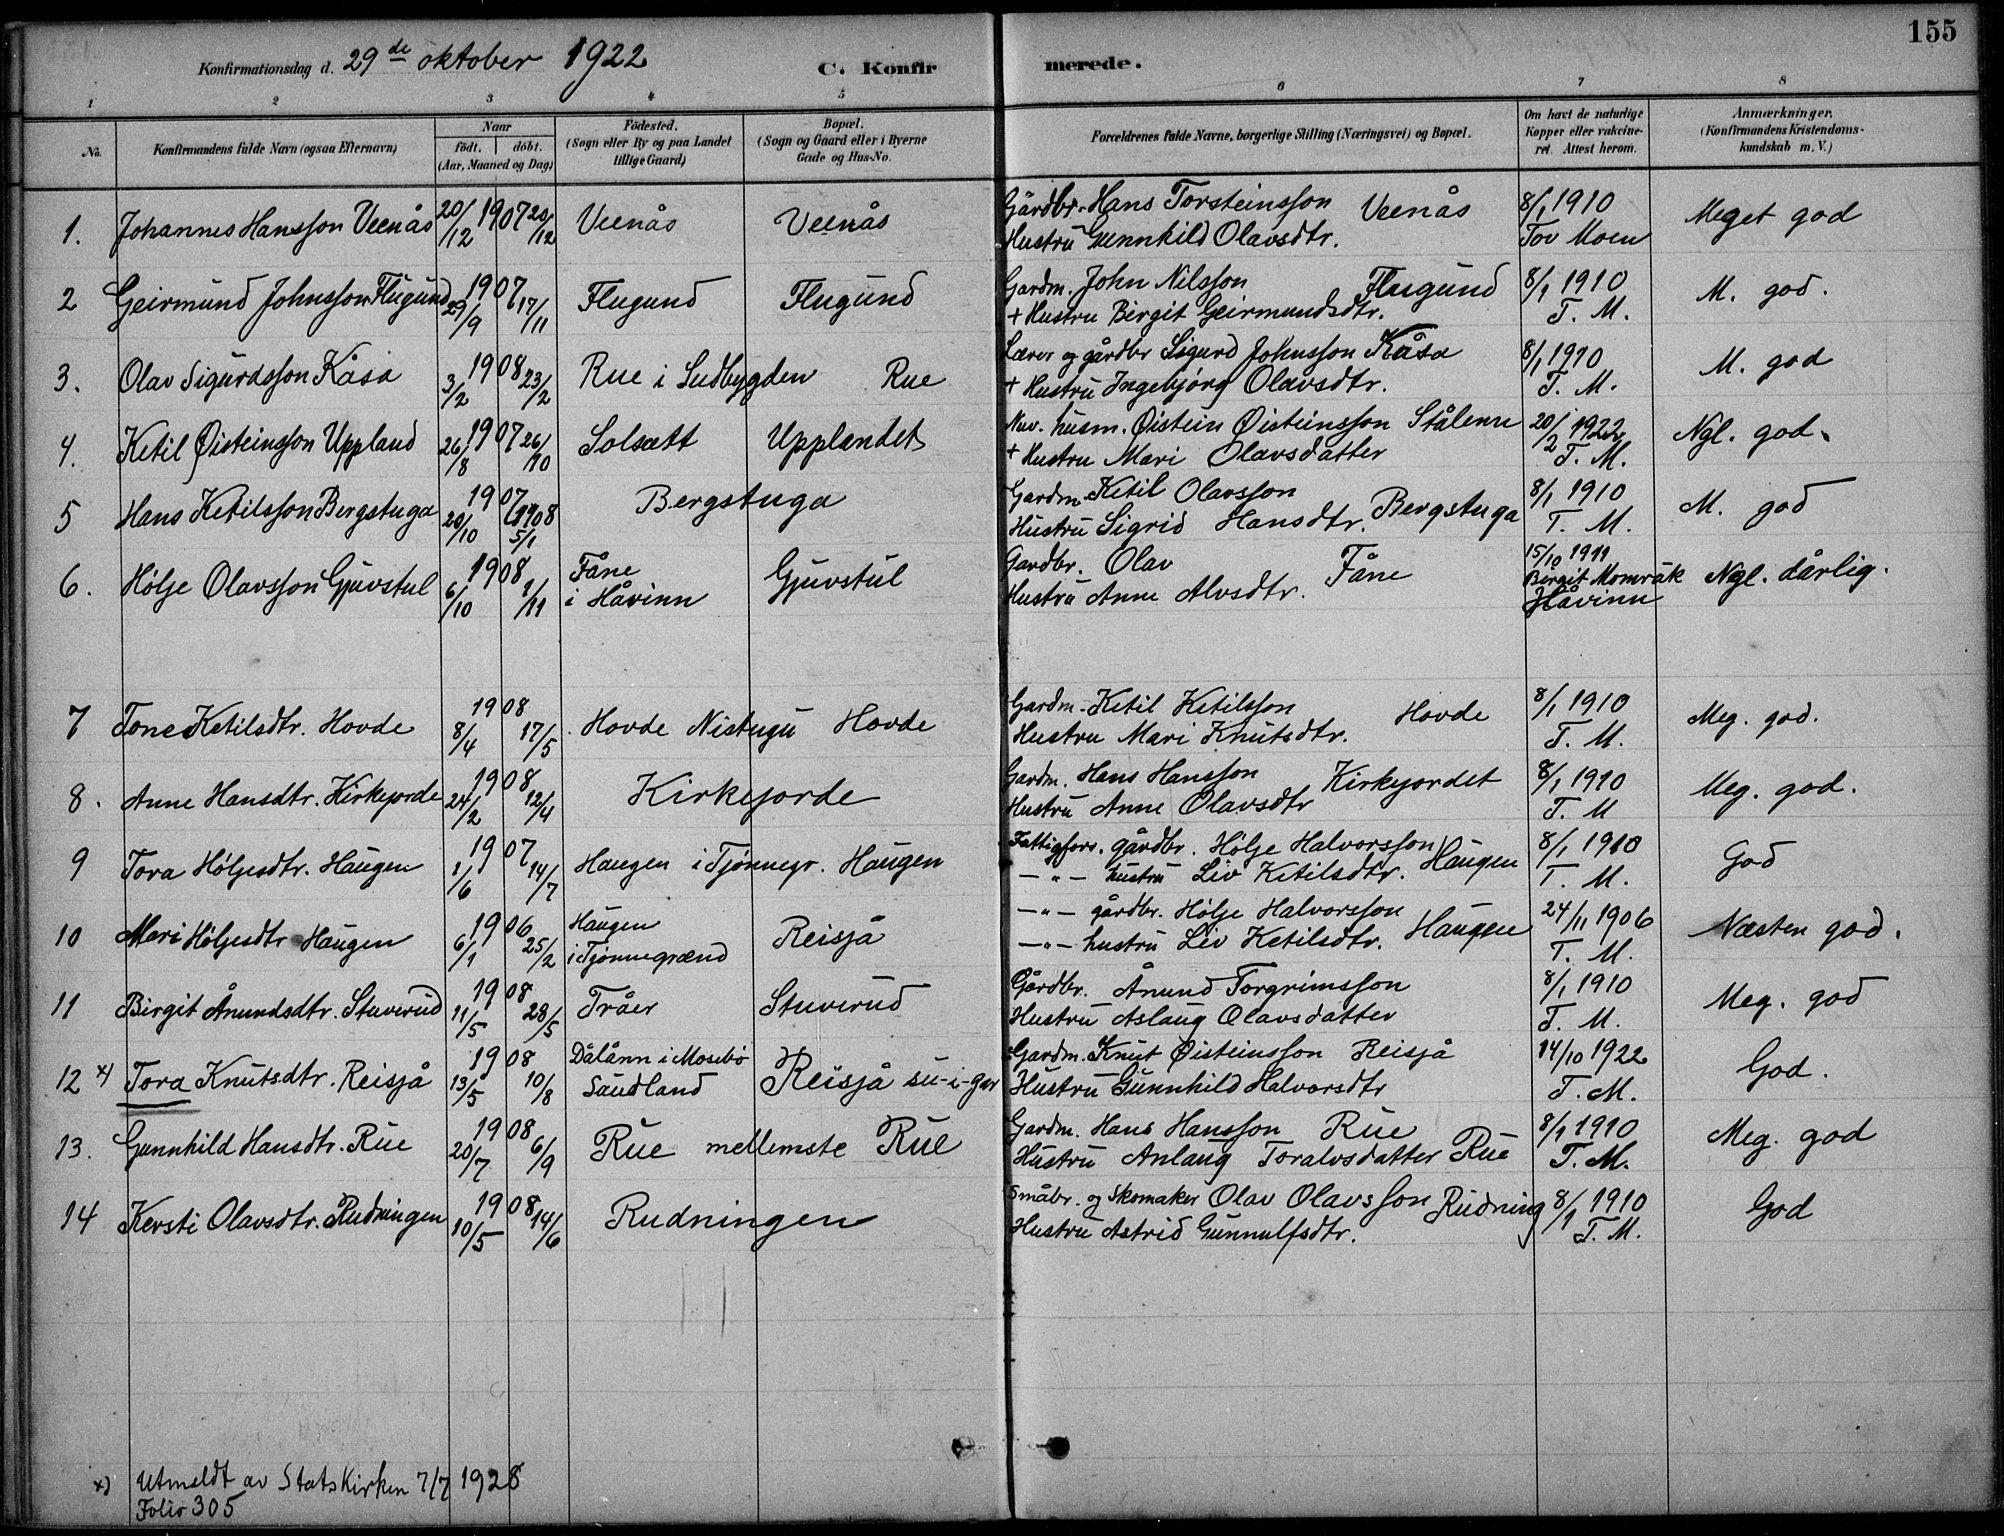 155
Konfirmationsdag d. 29de oktober 1922 C. Konfirmerede.
1 2 3 4 5 6 7 8
No. Konfirmandens fulde Navn (ogsaa Efternavn) Naar født. døbt. (Aar, Maaned og Dag) Fødested. (Sogn eller By og paa Landet tillige Gaard) Bopæl. (Sogn og Gaard eller i Byerne Gade og Hus-No. Forældrenes fulde Navne, borgerlige Stilling (Næringsvei) og Bopæl. Om havt de naturlige Kopper eller vakcineret. Attest herom. Anmærkninger. (Konfirmandens Kristendomskundskab m. V.)
1. Johannes Hansson Veenås 20/12 1907 20/12 Veenås Veenås Gårdbr. Hans Torsteinsson Veenås 8/1 1910 Meget god
Hustru Gunnhild Olavsdtr. Tov Moen
2 Geirmund Johnsson Flugund 1907 29/9 17/11 Flugund Flugund Gardm. John Nilsson Flugund 8/1 1910 M. god.
+ Hustru Birgit Geirmundsdtr. T. M.
3. Olav Sigurdsson Kåsa 1908 3/2 23/2 Rue i Sudbygden Rue Lærer og gårdbr Sigurd Johnsson Kåsa 8/1 1910 M. god
+ Hustru Ingebjörg Olavsdtr. T. M.
4. Ketil Øisteinsson Uppland 1907 26/8 26/10 Solsætt Upplandet Nuv. husm. Øistein Øisteinsson 20/2 1922 Ngl. god.
+ Hustru Mari Olavsdatter T. M.
5 Hans Ketilsson Bergstuga 1907 20/10 1908 5/1 Bergstuga Gardm. Ketil Olavsson Bergstuga 8/1 1910 M. god
Hustru Sigrid Hansdtr. T. M.
6. Hølje Olavsson Gjuvstul 1908 6/10 1/11 Fåne i Håvinn Gjuvstul Gardbr. Olav Fåne 15/10 1911 Ngl. dårlig.
Hustru Anne Alvsdtr. Birgit Mområk Håvinn
7 Tone Ketilsdtr. Hovde 1908 8/4 17/5 Hovde Nistugu Hovde Gardm. Ketil Ketilsson Hovde 8/1 1910 Meg. god.
Hustru Mari Knutsdtr. T. M.
8. Anne Hansdtr. Kirkejorde 1908 24/2 12/4 Kirkejorde Gardm. Hans Hansson Kirkejordet 8/1 1910 Meg. god.
Hustru Anne Olavsdtr T. M
9 Tora Høljesdtr. Haugen 1907 1/6 14/7 Haugen i Tjønnegr. Haugen Fattigfors. gårdbr. Hølje Halvorsson Haugen 8/1 1910 God
— " — hustru Liv Ketilsdtr. T. M.
10 Mari Høljesdtr Haugen 1906 6/1 25/2 Haugen i Tjønnegrænd Reisjå — " — gårdbr. Hølje Halvorsson Haugen 24/11 1906 Næsten god.
— " — hustru Liv Ketilsdtr. T. M.
11 Birgit Ånundsdtr. Stuverud 1908 11/5 28/5 Tråer Stuverud Gårdbr. Ånund Torgrimsson 8/1 1910 Meg. god
Hustru Aslaug Olavsdatter T. M.
12 x) Tora Knutsdtr. Reisjå 1908 13/5 10/8 Dålånn i Mosebø Saudland Reisjå su-i-gar Gardm. Knut Øisteinsson Reisjå 14/10 1922 God.
Hustru Gunnhild Halvorsdtr T. M.
13. Gunnhild Hansdtr. Rue 1908 20/7 6/9 Rue mellemste Rue Gardm. Hans Hansson Rue 8/1 1910 Meg. god
Hustru Anlaug Toralvsdatter Rue T. M.
14 Kersti Olavsdtr. Rudningen 1908 10/5 14/6 Rudningen Småbr. og Skomaker Olav Olavsson Rudning 8/1 1910 God
Hustru Astrid Gunnulfsdtr. T. M.
x) Utmeldt av Statskirken 7/7 1928
Folio 305